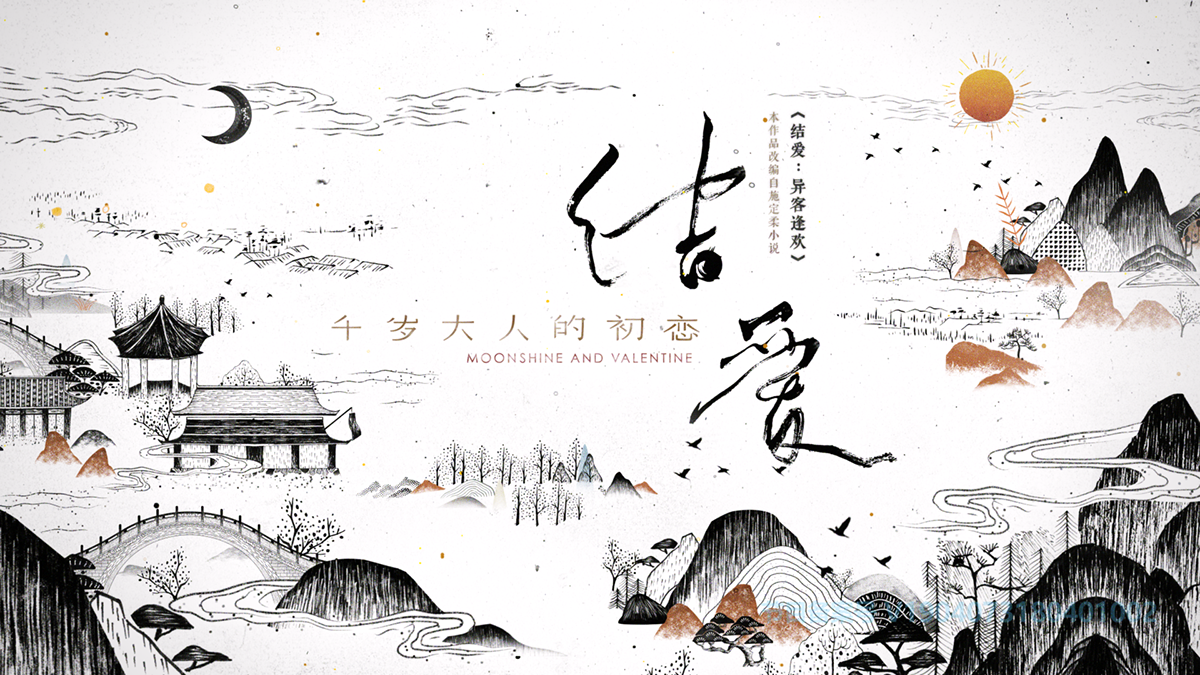 结爱
《结爱：异客逢欢》
本作品改编自施定柔小说
千岁大人的初恋
MOONSHINE AND VALENTINE